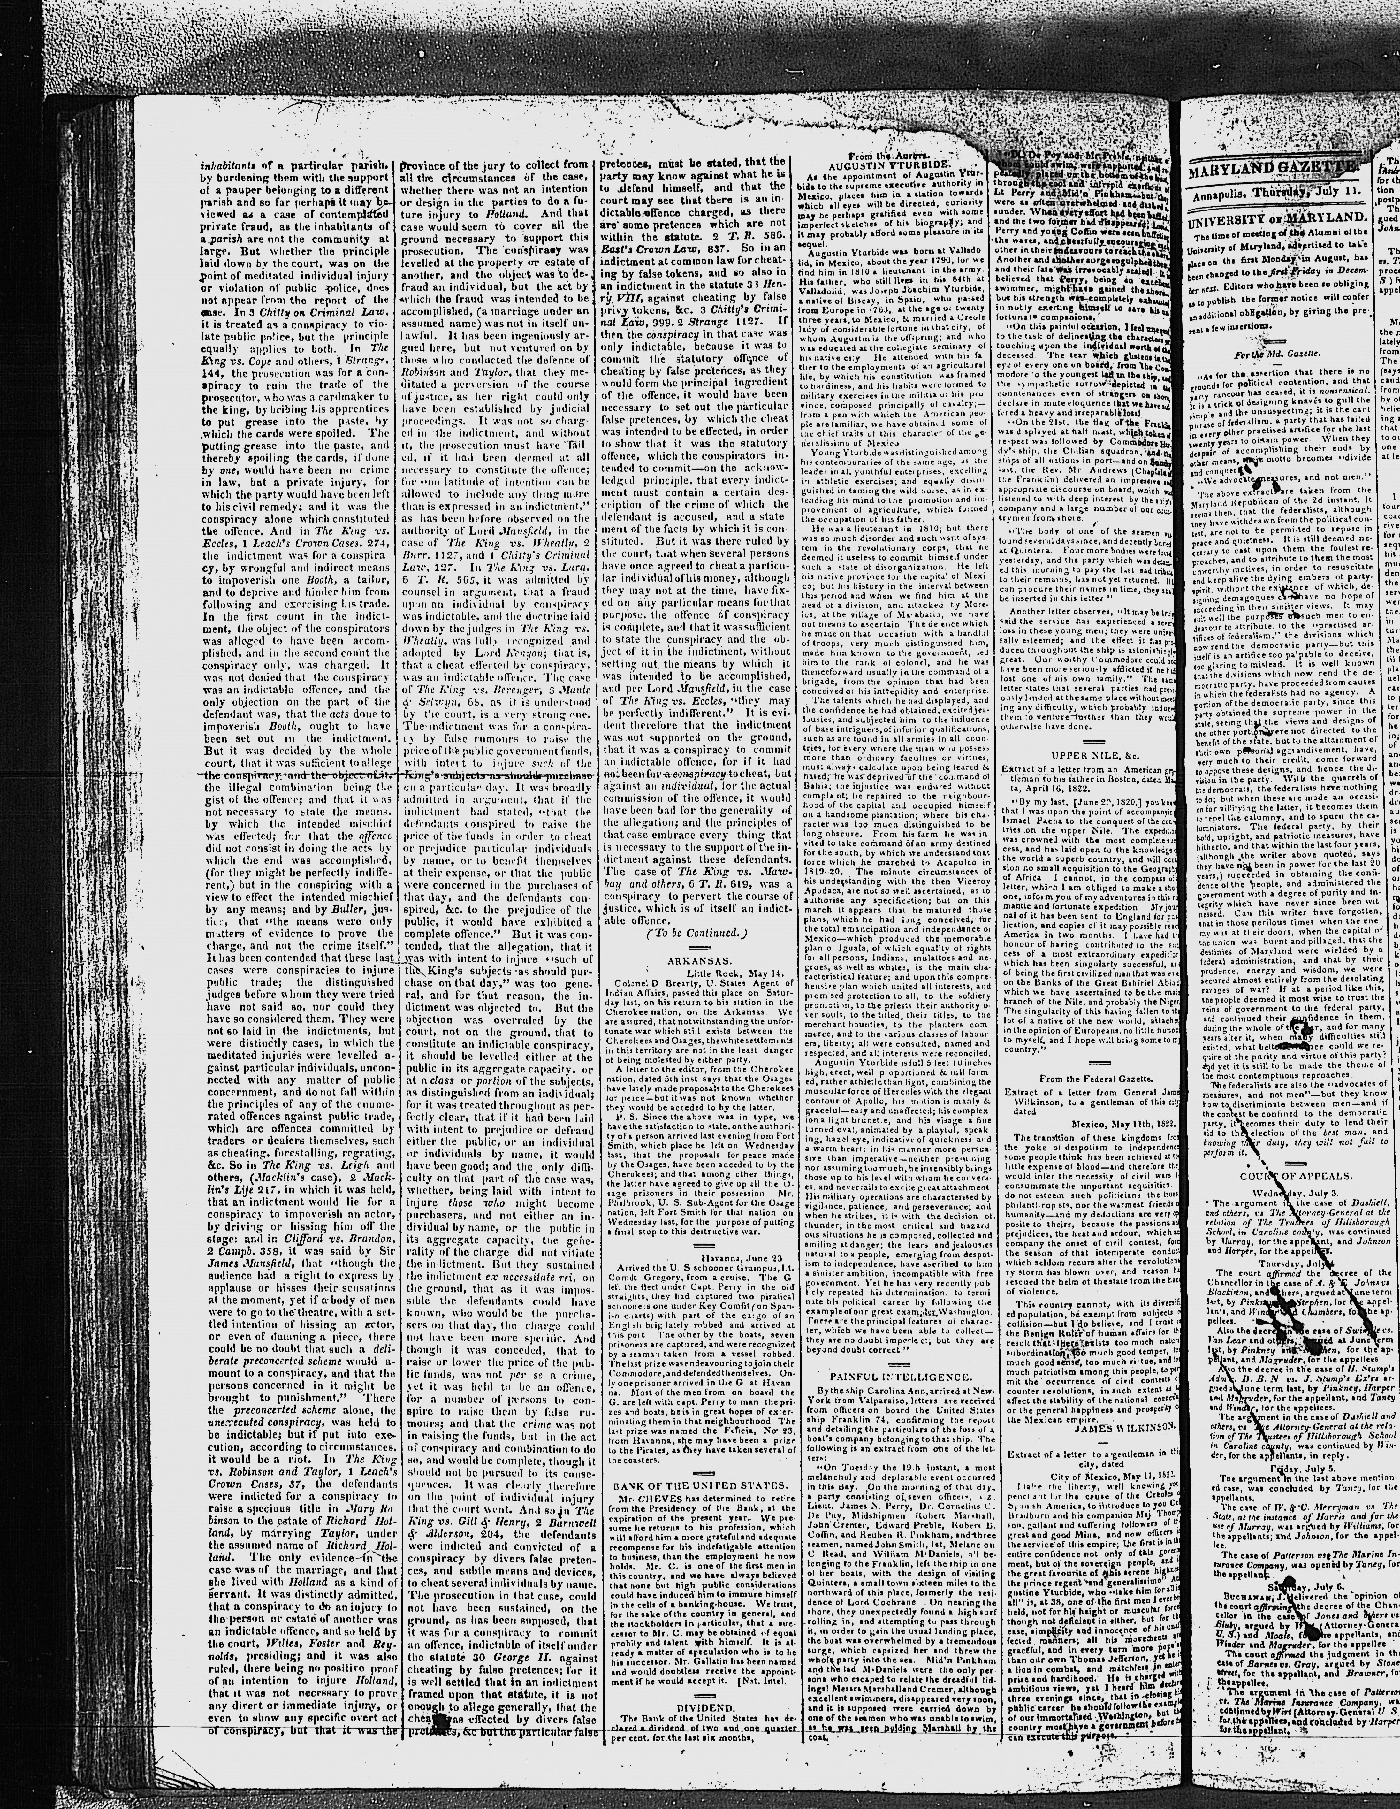 inhabitants of a particular parish,
by burdening them with the support
of a pauper belonging to a different
parish and so far perhaps it may be
viewed as a case of contemplated
private fraud, as the inhabitants of
a parish are not the community at
large. But whether the principle
laid down by the court, was on the
point of meditated individual injury
or violation of public police, does
not appear from the report of the
case. In 3 Chitty on Criminal Law,
it is treated as a conspiracy to vio-
late public police, but the principle
equally applies to both. In The
King vs. Cope and others, 1 Strange,
144, the prosecution was for a con-
spiracy to ruin the trade of the
prosecutor, who was a cardmaker to
the king, by bribing his apprentices
to put grease into the paste, by
which the cards were spoiled. The
putting grease into the paste, and
thereby spoiling the cards, if done
by one, would have been no crime
in law, but a private injury, for
which the party would have been left
to his civil remedy; and it was the
conspiracy alone which constituted
the offence. And in The King vs.
Eccles, 1 Leach's Crown Cases. 274,
the indictment was for a conspira-
cy, by wrongful and indirect means
to impoverish one Booth, a tailor,
and to deprive and hinder him from
following and exercising his trade.
In the first count in the indict-
ment, the object of the conspirators
was alleged to have been accom-
plished, and in the second count the
conspiracy only, was charged. It
was not denied that the conspiracy
was an indictable offence, and the
only objection on the part of the
defendant was, that the acts done to
impoverish Booth, ought to have
been set out in the indictment.
But it was decided by the whole
court, that it was sufficient to allege
the conspiracy and the object of it,
the illegal combination being the
gist of the offence; and that it was
not necessary to state the means.
by which the intended mischief
was effected; for that the offence
did not consist in doing the acts by
which the end was accomplished,
(for they might be perfectly indiffe-
rent,) but in the conspiring with a
view to effect the intended mischief
by any means; and by Buller, jus-
tice, that "the means were only
matters of evidence to prove the
charge, and not the crime itself."
It has been contended that these last
cases were conspiracies to injure
public trade; the distinguished
judges before whom they were tried
have not said so, nor could they
have so considered them. They were
not so laid in the indictments, but
were distinctly cases, in which the
meditated injuries were levelled a-
gainst particular individuals, uncon-
nected with any matter of public
concernment, and do not fall within
the principles of any of the enume-
rated offences against public trade,
which are offences committed by
traders or dealers themselves, such
as cheating, forestalling, regrating,
&c. So in The King vs. Leigh and
others, (Macklin's case), 2 Mack-
lin's Life 217, in which it was held,
that an indictment would lie for a
conspiracy to impoverish an actor,
by driving or hissing him off the
stage: and in Clifford vs. Brandon,
2 Campb. 358, it was said by Sir
James Mansfield, that "though the
audience had a right to express by
applause or hisses their sensations
at the moment, yet if a body of men
were to go to the theatre, with a set-
tled intention of hissing an actor,
or even of damning a piece, there
could be no doubt that such a deli-
berate preconcerted scheme would a-
mount to a conspiracy, and that the
persons concerned in it might be
brought to punishment." There
the preconcerted scheme alone, the
unexecuted conspiracy, was held to
be indictable; but if put into exe-
cution, according to circumstances,
it would be a riot. In The King
vs. Robinson and Taylor, 1 Leach's
Crown Cases, 37, the defendants
were indicted for a conspiracy to
raise a specious title in Mary Ro-
binson to the estate of Richard Hol-
land, by marrying Taylor, under
the assumed name of Richard Hol-
land. The only evidence in the
case was of the marriage, and that
she lived with Holland as a kind of
servant. It was distinctly admitted,
that a conspiracy to do an injury to
the person or estate of another was
an indictable offence, and so held by
the court, Willes, Foster and Rey-
nolds, presiding; and it was also
ruled, there being no positive proof
of an intention to injure Holland,
that it was not necessary to prove
any direct or immediate injury, or
even to show any specific overt act
of conspiracy, but that it was the
province of the jury to collect from
all the circumstances of the case,
whether there was not an intention
or design in the parties to do a fu-
ture injury to Holland. And that
case would seem to cover all the
ground necessary to support this
prosecution. The conspiracy was
levelled at the property or estate of
another, and the object was to de-
fraud an individual, but the act by
which the fraud was intended to be
accomplished, (a marriage under an
assumed name) was not in itself un-
lawful. It has been ingeniously ar-
gued here, but not ventured on by
those who conducted the defence of
Robinson and Taylor, that they me-
ditated a perversion of the course
of justice, as her right could only
have been established by judicial
proceedings. It was not so charg-
ed in the indictment, and without
it, the prosecution must have fail
ed, if it had been deemed at all
necessary to constitute the offence;
for "no latitude of intention can be
allowed to include any thing more
than is expressed in an indictment,"
as has been before observed on the
authority of Lord Mansfield, in the
case of The King vs. Wheatly, 2
Burr. 1127, and 1 Chitty's Criminal
Law, 127. In The King vs. Lara,
6 T. R. 565, it was admitted by
counsel in argument, that a fraud
upon an individual by conspiracy
was indictable, and the doctrine laid
down by the judges in The King vs.
Wheatly, was fully recognized and
adopted by Lord Kenyon; that is,
that a cheat effected by conspiracy,
was an indictable offence. The case
of The King vs. Berenger, 3 Maule
& Selwyn, 68, as it is understood
by the court, is a very strong one.
The indictment was for a conspira-
cy by false rumours to raise the
price of the public government funds,
with intent to injure such of the
King's subjects as should purchase
on a particular day. It was broadly
admitted in argument, that if the
indictment had stated, "that the
defendants conspired to raise the
price of the funds in order to cheat
or prejudice particular individuals
by name, or to benefit themselves
at their expense, or that the public
were concerned in the purchases of
that day, and the defendants con-
spired, &c. to the prejudice of the
public, it would have exhibited a
complete offence." But it was con-
tended, that the allegation, that it
was with intent to injure "such of
the King's subjects as should pur-
chase on that day," was too gene-
ral, and for that reason, the in-
dictment was objected to. But the
objection was overruled by the
court, not on the ground, that to
constitute an indictable conspiracy,
it should be levelled either at the
public in its aggregate capacity, or
at a class or portion of the subjects,
as distinguished from an individual;
for it was treated throughout as per-
fectly clear, that if it had been laid
with intent to prejudice or defraud
either the public, or an individual
or individuals by name, it would
have been good; and the only diffi-
culty on that part of the case was,
whether, being laid with intent to
injure those who might become
purchasers, and not either an in-
dividual by name, or the public in
its aggregate capacity, the gene-
rality of the charge did not vitiate
the indictment. But they sustained
the indictment ex necessitate rei, on
the ground, that as it was impos-
sible the defendants could have
known, who would be the purcha-
sers on that day, the charge could
not have been more specific. And
though it was conceded, that to
raise or lower the price of the pub-
lic funds, was not per se a crime,
yet it was held to be an offence,
for a number of persons to con-
spire to raise them by false ru-
mours; and that the crime was not
in raising the funds, but in the act
of conspiracy and combination to do
so, and would be complete, though it
should not be pursued to its conse-
quences. It was clearly therefore
on the point of individual injury
that the court went. And so in The
King vs. Gill & Henry, 2 Barnwell
& Alderson, 204, the defendants
were indicted and convicted of a
conspiracy by divers false preten-
ces, and subtle means and devices,
to cheat several individuals by name.
The prosecution in that case, could
not have been sustained, on the
ground, as has been supposed, that
it was for a conspiracy to commit
an offence, indictable of itself under
the statute 30 George II. against
cheating by false pretences; for it
is well settled that in an indictment
framed upon that statute, it is not
enough to allege generally, that the
cheat was effected by divers false
pretences, &c but the particular false
pretences, must be stated, that the
party may know against what he is
to defend himself, and that the
court may see that there is an in-
dictable offence charged, as there
are some pretences which are not
within the statute. 2 T. R. 586.
East's Crown Law, 837. So in an
indictment at common law for cheat-
ing by false tokens, and so also in
an indictment in the statute 33 Hen-
ry VIII, against cheating by false
privy tokens, &c. 3 Chitty's Crimi-
nal Law, 999. 2 Strange 1127. If
then the conspiracy in that case was
only indictable, because it was to
commit the statutory offence of
cheating by false pretences, as they
would form the principal ingredient
of the offence, it would have been
necessary to set out the particular
false pretences, by which the cheat
was intended to be effected, in order
to show that it was the statutory
offence, which the conspirators in-
tended to commit—on the acknow-
ledged principle, that every indict-
ment must contain a certain des-
cription of the crime of which the
defendant is accused, and a state
ment of the facts by which it is con-
stituted. But it was there ruled by
the court, that when several persons
have once agreed to cheat a particu-
lar individual of his money, although
they may not at the time, have fix-
ed on any particular means for that
purpose, the offence of conspiracy
is complete, and that it was sufficient
to state the conspiracy and the ob-
ject of it in the indictment, without
setting out the means by which it
was intended to be accomplished,
and per Lord Mansfield, in the case
of The King vs. Eccles, "they may
be perfectly indifferent." It is evi-
dent therefore that the indictment
was not supported on the ground,
that it was a conspiracy to commit
an indictable offence, for if it had
not been for a conspiracy to cheat, but
against an individual, for the actual
commission of the offence, it would
have been bad for the generality of
the allegation; and the principles of
that case embrace every thing that
is necessary to the support of the in-
dictment against these defendants.
The case of The King vs. Maw-
bay and others, 6 T. R. 619, was a
conspiracy to pervert the course of
justice, which is of itself an indict-
able offence.
(To be Continued.)
ARKANSAS.
Little Rock, May 14.
Colonel D Brearly, U. States Agent of
Indian Affairs, passed this place on Satur-
day last, on his return to his station in the
Cherokee nation, on the Arkansas. We
are assured, that notwithstanding the unfor-
tunate war which still exists between the
Cherokees and Osages, the white settlements
in this territory are not in the least danger
of being molested by either party.
A letter to the editor, from the Cherokee
nation, dated 5th inst says that the Osages
have lately made proposals to the Cherokees
for peace—but it was not known whether
they would be acceded to by the latter.
P. S. Since the above was in type, we
have the satisfaction to state, on the authori-
ty of a person arrived last evening from Fort
Smith, which place he left on Wednesday
last, that the proposals for peace made
by the Osages, have been acceded to by the
Cherokees; and that among other things,
the latter have agreed to give up all the O-
sage prisoners in their possession Mr.
Philbrook, U. S. Sub-Agent for the Osage
nation, left Fort Smith for that nation on
Wednesday last, for the purpose of putting
a final stop to this destructive war.
Havanna, June 23
Arrived the U. S schooner Grampus, Lt.
Comdt. Gregory, from a cruise. The G
left the fleet under Capt. Perry in the old
straights, they had captured two piratical
schooners one under Key Comfit (on Span-
ish coasts) with part of the cargo of an
English brig lately robbed and arrived at
this port The other by the boats, seven
prisoners are captured, and were recognized
by a seaman taken from a vessel robbed.
The last prize was endeavouring to join their
Commodore, and defended themselves. On-
ly one prisoner arrived in the G at Havan
na. Most of the men from on board the
G. are left with capt. Perry to man the pri-
zes and boats, he is in great hopes of exter-
minating them in that neighbourhood The
last prize was named the Felicia, No 23,
from Havanna, she may have been a prize
to the Pirates, as they have taken several of
the coasters.
BANK OF THE UNITED STATES.
Mr. CHEVES has determined to retire
from the Presidency of the Bank, at the
expiration of the present year. We pre-
sume he returns to his profession, which
will afford him a more grateful and adequate
recompense for his indefatigable attention
to business, than the employment he now
holds. Mr. C. is one of the first men in
this country, and we have always believed
that none but high public considerations
could have induced him to immure himself
in the cells of a banking-house. We trust,
for the sake of the country in general, and
the stockholders in particular, that a suc-
cessor to Mr. C. may be obtained of equal
probity and talent with himself. It is al-
ready a matter of speculation who is to be
his successor. Mr. Gallatin has been named
and would doubtless receive the appoint-
ment if he would accept it. [Nat. Intel.
DIVIDEND.
The Bank of the United States has de-
clared a dividend of two and one quarter
per cent. for the last six months,
From the Aurora.
AUGUSTIN YTURBIDE.
As the appointment of Augustin Ytur-
bide to the supreme executive authority in
Mexico, places him in a station towards
which all eyes will be directed, curiosity
may be perhaps gratified even with some
imperfect sketches of his biography; and
it may probably afford some pleasure in its
sequel.
Augustin Yturbide was born at Vallado
lid, in Mexico, about the year 1790, for we
find him in 1810 a lieutenant in the army.
His father, who still lives in his 84th at
Valladolid, was Joseph Joachim Yturbide,
a native of Biscay, in Spain, who passed
from Europe in 1763, at the age of twenty
three years, to Mexico, & married a Creole
lady of considerable fortune in that city, of
whom Augustin is the offspring; and who
was educated at the collegiate seminary of
his native city He attended with his fa
ther to the employments of an agricultural
life, by which his constitution was framed
to hardiness, and his habits were formed to
military exercises in the militia of his pro
vince, composed principally of cavalry;—
from a pen with which the American peo-
ple are familiar, we have obtained some of
the chief traits of this character of the ge-
neralissimo of Mexico
Young Yturbide was distinguished among
his contemporaries of the same age, as the
leader in all youthful enterprises, excelling
in athletic exercises; and equally distin
guished in taming the wild horse, as in ex-
tending his mind to the promotion and im-
provement of agriculture, which formed
the occupation of his father.
He was a lieutenant in 1810; but there
was so much disorder and such want of sys-
tem in the revolutionary corps, that he
deemed it useless to commit himself under
such a state of disorganization. He left
his native province for the capital of Mexi
co; but his history in the interval between
this period and when we find him at the
head of a division, and attacked by More-
los, at the village of Maxbatio, we have
not means to ascertain. The defence which
he made on that occasion with a handful
of troops, very much distinguished him,
made him known to the government, led
him to the rank of colonel, and he was
thenceforward usually in the command of a
brigade, from the opinion that had been
conceived of his intrepidity and enterprise.
The talents which he had displayed, and
the confidence he had obtained, excited jea-
lousies, and subjected him to the influence
of base intrigues, of inferior qualifications,
such as are found in all armies in all coun-
tries, for every where the man who possess
more than ordinary faculties or virtues,
must always calculate upon being feared &
hated; he was deprived of the command of
Bahia; the injustice was endured without
complaint; he repaired to the neighbour-
hood of the capital and occupied himself
on a handsome plantation; where his cha-
racter was too much distinguished to be
long obscure. From his farm he was in-
vited to take command of an army destined
for the south, by which we understand that
force which he marched to Acapulco in
1819-20. The minute circumstances of
his understanding with the then Viceroy
Apodaca, are not so well ascertained, as to
authorise any specification; but on this
march it appears that he matured those
plans, which he had long conceived, for
the total emancipation and independence of
Mexico—which produced the memorable
plan of Iguala, of which equality of rights
for all persons, Indians, mulattoes and ne-
groes, as well as whites, is the main cha-
racteristical feature; and upon this compre-
hensive plan which united all interests, and
promised protection to all, to the soldiery
promotion, to the priests their authority o-
ver souls, to the titled, their titles, to the
merchant bounties, to the planters com-
merce, and to the various classes of labour
ers, liberty; all were consulted, named and
respected, and all interests were reconciled.
Augustin Yturbide is full 5 feet 10 inches
high, erect, well proportioned & full form-
ed, rather athletic than light, combining the
muscular force of Hercules with the elegant
contour of Apollo; his motion is manly &
graceful—easy and unaffected; his complex
ion a light brunette, and his visage a fine
turned oval, animated by a playful, speak
ing, hazel eye, indicative of quickness and
a warm heart; in his manner more persua-
sive than imperative—neither presuming
nor assuming too much, he insensibly brings
those up to his level with whom he conver-
es, and never fails to excite great attachment
His military operations are characterised by
vigilance, patience, and perseverance; and
when he strikes, it is with the decision of
thunder, in the most critical and hazard
ous situations he is composed, collected and
smiling at danger; the fears and jealousies
natural to a people, emerging from despot-
ism to independence, have ascribed to him
a sinister ambition, incompatible with free
government. Yet he has very recently pub
licly repeated his determination to termi
nate his political career by following the
example of our great exemplar, Washington.
These are the principal features of charac-
ter, which we have been able to collect—
they are no doubt imperfect; but they are
beyond doubt correct."
PAINFUL INTELLIGENCE.
By the ship Carolina Ann, arrived at New
York from Valparaiso, letters are received
from officers on board the United States
ship Franklin 74, confirming the report
and detailing the particulars of the loss of a
boat's company belonging to that ship. The
following is an extract from one of the let-
ters:
"On Tuesday the 19th instant, a most
melancholy and deplorable event occurred
in this bay. On the morning of that day,
a party consisting of seven officers, viz.
Lieut. James N. Perry, Dr. Cornelius C.
De Puy, Midshipmen Robert Marshall,
John Cremer, Edward Preble, Robert B.
Coffin, and Reuben R. Pinkham, and three
seamen, named John Smith, 1st, Melane on
C Read, and William M'Daniels, all be-
longing to the Franklin, left the ship in one
of her boats, with the design of visiting
Quintero, a small town sixteen miles to the
northward of this place, formerly the resi-
dence of Lord Cochrane On nearing the
shore, they unexpectedly found a high surf
rolling in, and attempting to pass through
it, in order to gain the usual landing place,
the boat was overwhelmed by a tremendous
surge, which capsized her and threw the
whole party into the sea. Mid'n Pinkham
and the lad McDaniels were the only per-
sons who escaped to relate the dreadful tid-
ings! Messrs Marshall and Cremer, although
excellent swimmers, disappeared very soon,
and it is supposed were carried down by
one of the seamen who was unable to swim,
as he was seen holding Marshall by the
coat.
"Dr. De Puy and Mr. Preble, neither of
them could swim, were supported
through the cool and intrepid exertions of
Lt Perry and Mid'n Pinkham—but they
were as often overwhelmed and dashed a-
sunder. When every effort had been baffled,
and the two former had disappeared, Lt.
Perry and young Coffin were seen buffeting
the waves, and cheerfully encouraging each
other in their endeavours to reach the shore.
Another and another surge overwhelmed
and their fate was irrevocably sealed. It is
believed that Perry, being an excellent
swimmer, might have gained the shore,
but his strength was completely exhausted
in nobly exerting himself to save his un-
fortunate companions.
"On this painful occasion, I feel unequal
to the task of delineating the characters, or
touching upon the individual worth of the
deceased. The tear which glistens in the
eye of every one on board, from the Com
modore to the youngest lad in the ship, and
the sympathetic sorrow depicted in the
countenances even of strangers on shore,
declare in mute eloquence that we have suf
fered a heavy and irreparable loss!
"On the 21st, the flag of the Franklin
was displayed at half mast, which token of
respect was followed by Commodore Har-
dy's ship, the Chilian squadron, and the
ships of all nations in port—and on Sunday
last, the Rev. Mr Andrews (Chaplain of
the Franklin) delivered an impressive and
appropriate discourse on board, which was
listened to with deep interest by the ship's
company and a large number of our coun-
trymen from shore.
"The body of one of the seamen was
found several days since, and decently buried
at Quintera. Four more bodies were found
yesterday, and the party which was detach
ed this morning to pay the last sad tribute
to their remains, has not yet returned. If I
can procure their names in time, they shall
be inserted in this letter."
Another letter observes, "It may be truly
said the service has experienced a severe
loss in these young men; they were univer
sally esteemed; and the effect it has pro-
duced throughout the ship is astonishingly
great. Our worthy Commodore could not
have been more seriously afflicted if he had
lost one of his own family." The same
letter states that several parties had previ
ously landed at the same place without meet
ing any difficulty, which probably induced
them to venture further than they would
otherwise have done.
UPPER NILE, &c.
Extract of a letter from an American gen-
tleman to his father in Boston, dated Mal-
ta, April 16, 1822.
"By my last, [June 29, 1820,] you knew
that I was upon the point of accompanying
Ismael Pacha to the conquest of the coun-
tries on the upper Nile. The expedition
was crowned with the most complete suc-
cess, and has laid open to the knowledge of
the world a superb country, and will occa
sion no small acquisition to the Geography
of Africa I cannot, in the compass of a
letter, which I am obliged to make a short
one, inform you of my adventures in this ro-
mantic and fortunate expedition My jour-
nal of it has been sent to England for pub-
lication, and copies of it may possibly reach
America in two months. I have had the
honour of having contributed to the suc-
cess of a most extraordinary expedition,
which has been singularly successful, and
of being the first civilized man that was ever
on the Banks of the Great Bahiriel Abiad
which we have ascertained to be the main
branch of the Nile, and probably the Niger.
The singularity of this having fallen to the
lot of a native of the new world, attaches
in the opinion of Europeans, no little honour
to myself, and I hope will bring some to my
country."
From the Federal Gazette.
Extract of a letter from General James
Wilkinson, to a gentleman of this city,
dated
Mexico, May 11th, 1822.
The transition of these kingdoms from
the yoke of despotism to independence,
some people think has been achieved at too
little expense of blood—and therefore they
would infer the necessity of civil war to
consummate the important acquisition. I
do not esteem such politicians the best
philanthropists, nor the warmest friends of
humanity—and my deductions are very op
posite to theirs, because the passions and
prejudices, the heat and ardour, which ac-
company the onset of civil contest, forbid
the season of that intemperate conduct
which seldom occurs after the revolutiona-
ry storm has blown over, and reason has
rescued the helm of the state from the hand
of violence.
This country cannot, with its diversity
of population, be exempt from subjects of
collision—but I do believe, and I trust in
the Benign Ruler of human affairs for the
result that there exists too much natural
subordination, too much good temper, too
much good sense, too much virtue, and too
much patriotism among this people, to per-
mit the occurrence of civil contests or
counter revolutions, in such extent as to
affect the stability of the national concord,
or the general happiness and prosperity of
the Mexican empire.
JAMES WILKINSON.
Extract of a letter to a gentleman in this
city, dated
City of Mexico, May 11, 1822.
I take the liberty, well knowing your
penchant for the cause of the Creoles of
Spanish America, to introduce to you Col.
Bradburn and his companion Maj. Thomp-
son, gallant and suffering followers of the
great and good Mina, and now officers in
the service of this empire; the first is in the
entire confidence not only of this govern
ment, but of the sovereign people, and is
the great favourite of his serene highness
the prince regent and generalissimo Au-
gustine Yturbide, who "take him for all in
all" is, at 38, one of the first men I ever be
held, not for his height or muscular force,
though not deficient in either, but for the
ease, simplicity and innocence of his unaf-
fected manners; all his movements are
graceful, and in every turn more popular
than our own Thomas Jefferson, yet he is
a lion in combat, and matchless in enter-
prise and hardihood. He is charged with
ambitious views, yet I heard him declare
three evenings since, that in closing his
public career he should follow the example
of our immortalised Washington, but the
country must have a government before he
can execute this purpose.
MARYLAND GAZETTE.
Annapolis, Thursday, July 11.
UNIVERSITY OF MARYLAND.
The time of meeting of the Alumni of the
University of Maryland, advertised to take
place on the first Monday in August, has
been changed to the first Friday in Decem-
ber next. Editors who have been so obliging
as to publish the former notice will confer
an additional obligation, by giving the pre-
sent a few insertions.
For the Md. Gazette.
"As for the assertion that there is no
grounds for political contention, and that
party rancour has ceased, it is nonsensical.
It is a trick of designing knaves to gull the
simple and the unsuspecting; it is the cant
phrase of federalism, a party that has failed
in every other practised artifice for the last
twenty years to obtain power. When they
despair of accomplishing their ends by
other means, the motto becomes "divide
and conquer."
"We advocate measures, and not men."
The above extracts are taken from the
Maryland Republican of the 2d instant. It
seems that the federalists, although
they have withdrawn from the political con-
test, are not to be permitted to repose in
peace and quietness. It is still deemed ne-
cessary to cast upon them the foulest re-
proaches, and to attribute to them the most
unworthy motives, in order to resuscitate
and keep alive the dying embers of party-
spirit, without the existence of which, de-
signing demagogues have no hope of
succeeding in their sinister views. It may
suit well the purposes of such men to en-
deavour to attribute, to the "practised ar-
tifices of federalism," the divisions which
now rend the democratic party—but this
itself is an artifice too palpable to deceive,
too glaring to mislead. It is well known
that the divisions which now rend the de-
mocratic party, have proceeded from causes
in which the federalists had no agency. A
portion of the democratic party, since this
party obtained the supreme power in the
state, seeing that the views and designs of
the other portion were not directed to the
benefit of the state, but to the attainment of
their own personal aggrandisement, have,
very much to their credit, come forward
to oppose these designs, and hence the di-
vision in the party. With the quarrels of
the democrats, the federalists have nothing
to do; but when these are made an occasion
for vilifying the latter, it becomes them
to repel the calumny, and to spurn the ca-
lumniators. The federal party, by their
bold, upright, and patriotic measures, have
hitherto, and that within the last four years,
(although the writer above quoted, says
they have not been in power for the last 20
years,) succeeded in obtaining the confi-
dence of the people, and administered the
government with a degree of purity and in-
tegrity which have never since been wit-
nessed. Can this writer have forgotten,
that in those perilous times when the ene-
my was at their doors, when the capital of
the union was burnt and pillaged, that the
destinies of Maryland were wielded by a
federal administration, and that by their
prudence, energy and wisdom, we were
secured almost entirely from the desolating
ravages of war? If at a period like this,
the people deemed it most wise to trust the
reins of government to the federal party,
and continued their confidence in them,
during the whole of the war, and for many
years after it, when many difficulties still
existed, what better evidence could we re-
quire of the purity and virtue of this party?
and yet it is still to be made the theme of
the most contemptuous reproaches.
The federalists are also the "advocates of
measures, and not men"—but they know
how to discriminate between men—and if
the choice be confined to the democratic
party, it becomes their duty to lend their
aid to the election of the best man, and
knowing this duty, they will not fail to
perform it.
COURT OF APPEALS.
Wednesday, July 3.
The argument in the case of Dashiell,
and others, vs The Attorney-General at the
relation of The Trustees of Hillsborough
School, in Caroline county, was continued
by Murray, for the appellants, and Johnson
and Harper, for the appellees.
Thursday, July 4.
The court affirmed the decree of the
Chancellor in the case of
appel-
lants, and Winder and Chambers, for the ap-
pellees.
Also the decree in the case of
Van Lear and others, argued at June
last, by Pinkney and for the ap-
pellant, and Magruder, for the appellees
Also the decree in the case of H. Stump's
Adm. D. B. N vs. J. Stump's Ex'rs ar-
gued at June term last, by Pinkney, Harper
and Magruder, for the appellants, and Taney
and Winder for the appellees.
The argument in the case of Dashiell and
others, vs. The Attorney General at the rela-
tion of The Trustees of Hillsborough School
in Caroline county, was continued by Win-
der, for the appellants, in reply.
Friday, July 5.
The argument in the last above mention-
ed case, was concluded by Taney, for the
appellants.
The case of W. & C. Merryman vs The
State, at the instance of Harris and for the
use of Murray, was argued by Williams, for
the appellants; and Johnson, for the appel-
lee.
The case of Patterson vs The Marine In-
surance Company, was opened by Taney, for
the appellant.
Saturday, July 6.
BUCHANAN, J. delivered the opinion of
the court affirming the decree of the Chan-
cellor in the case of Jones and others vs
Sluby, argued by Wirt (Attorney-General
U. S.) and Moale, for the appellants, and
Winder and Magruder, for the appellee
The court affirmed the judgment in the
case of Barnes vs. Gray, argued by Stone-
street, for the appellant, and Brawner, for
the appellee.
The argument in the case of Patterson
vs. The Marine Insurance Company, was
continued by Wirt (Attorney-General U S)
for the appellees, and concluded by Harper
for the appellant.